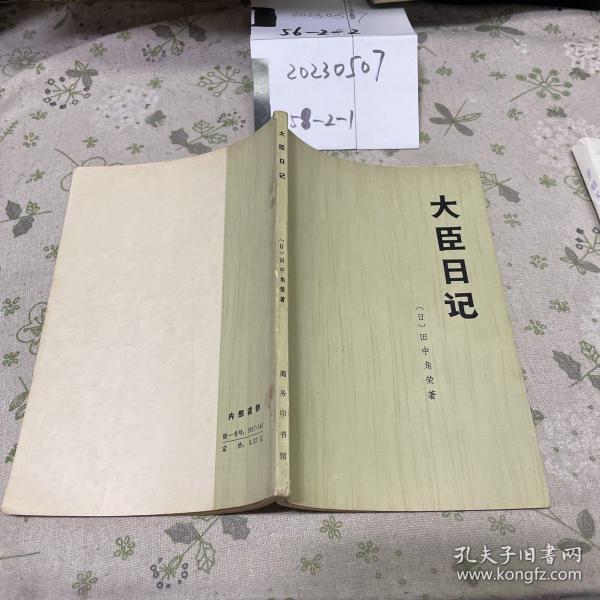 56-2-2
20230507
58-2-1
大臣日记
〔日〕田中角荣著
大臣日记
〔日〕田中角荣著
商务印书馆
内部读物
定价：0.37元
孔夫子旧书网
www.kongfz.com